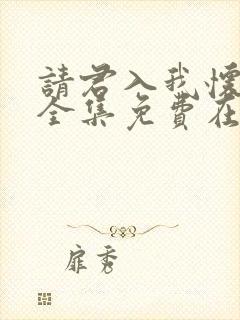 請君入我懷
全集免費在
扉秀